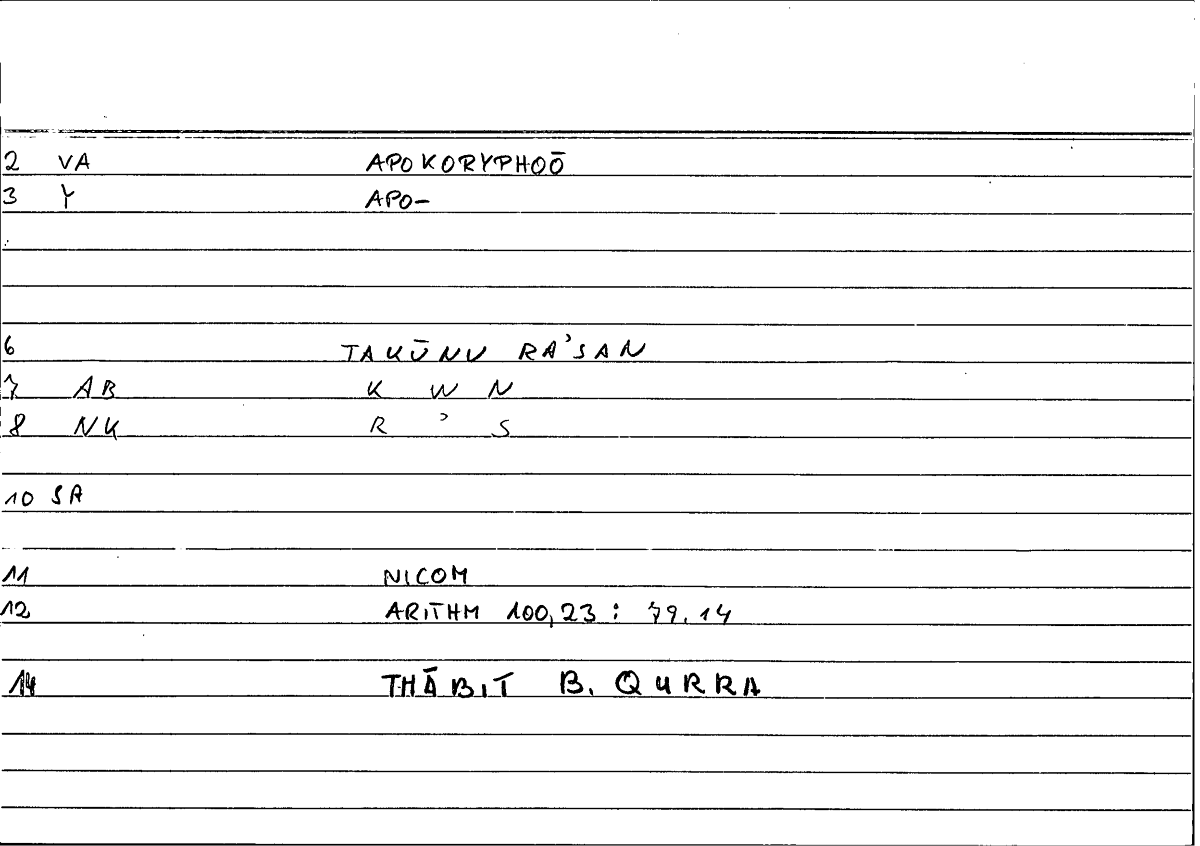 2 VA APOKORYPHOŌ
3 Y APO-
6 TAKŪNU RA’SAN
7 AB K W N
8 NK R ’ S
10 SA
11 NICOM
12 ARITHM 100,23 : 79.14
14 THĀBIT B. QURRA